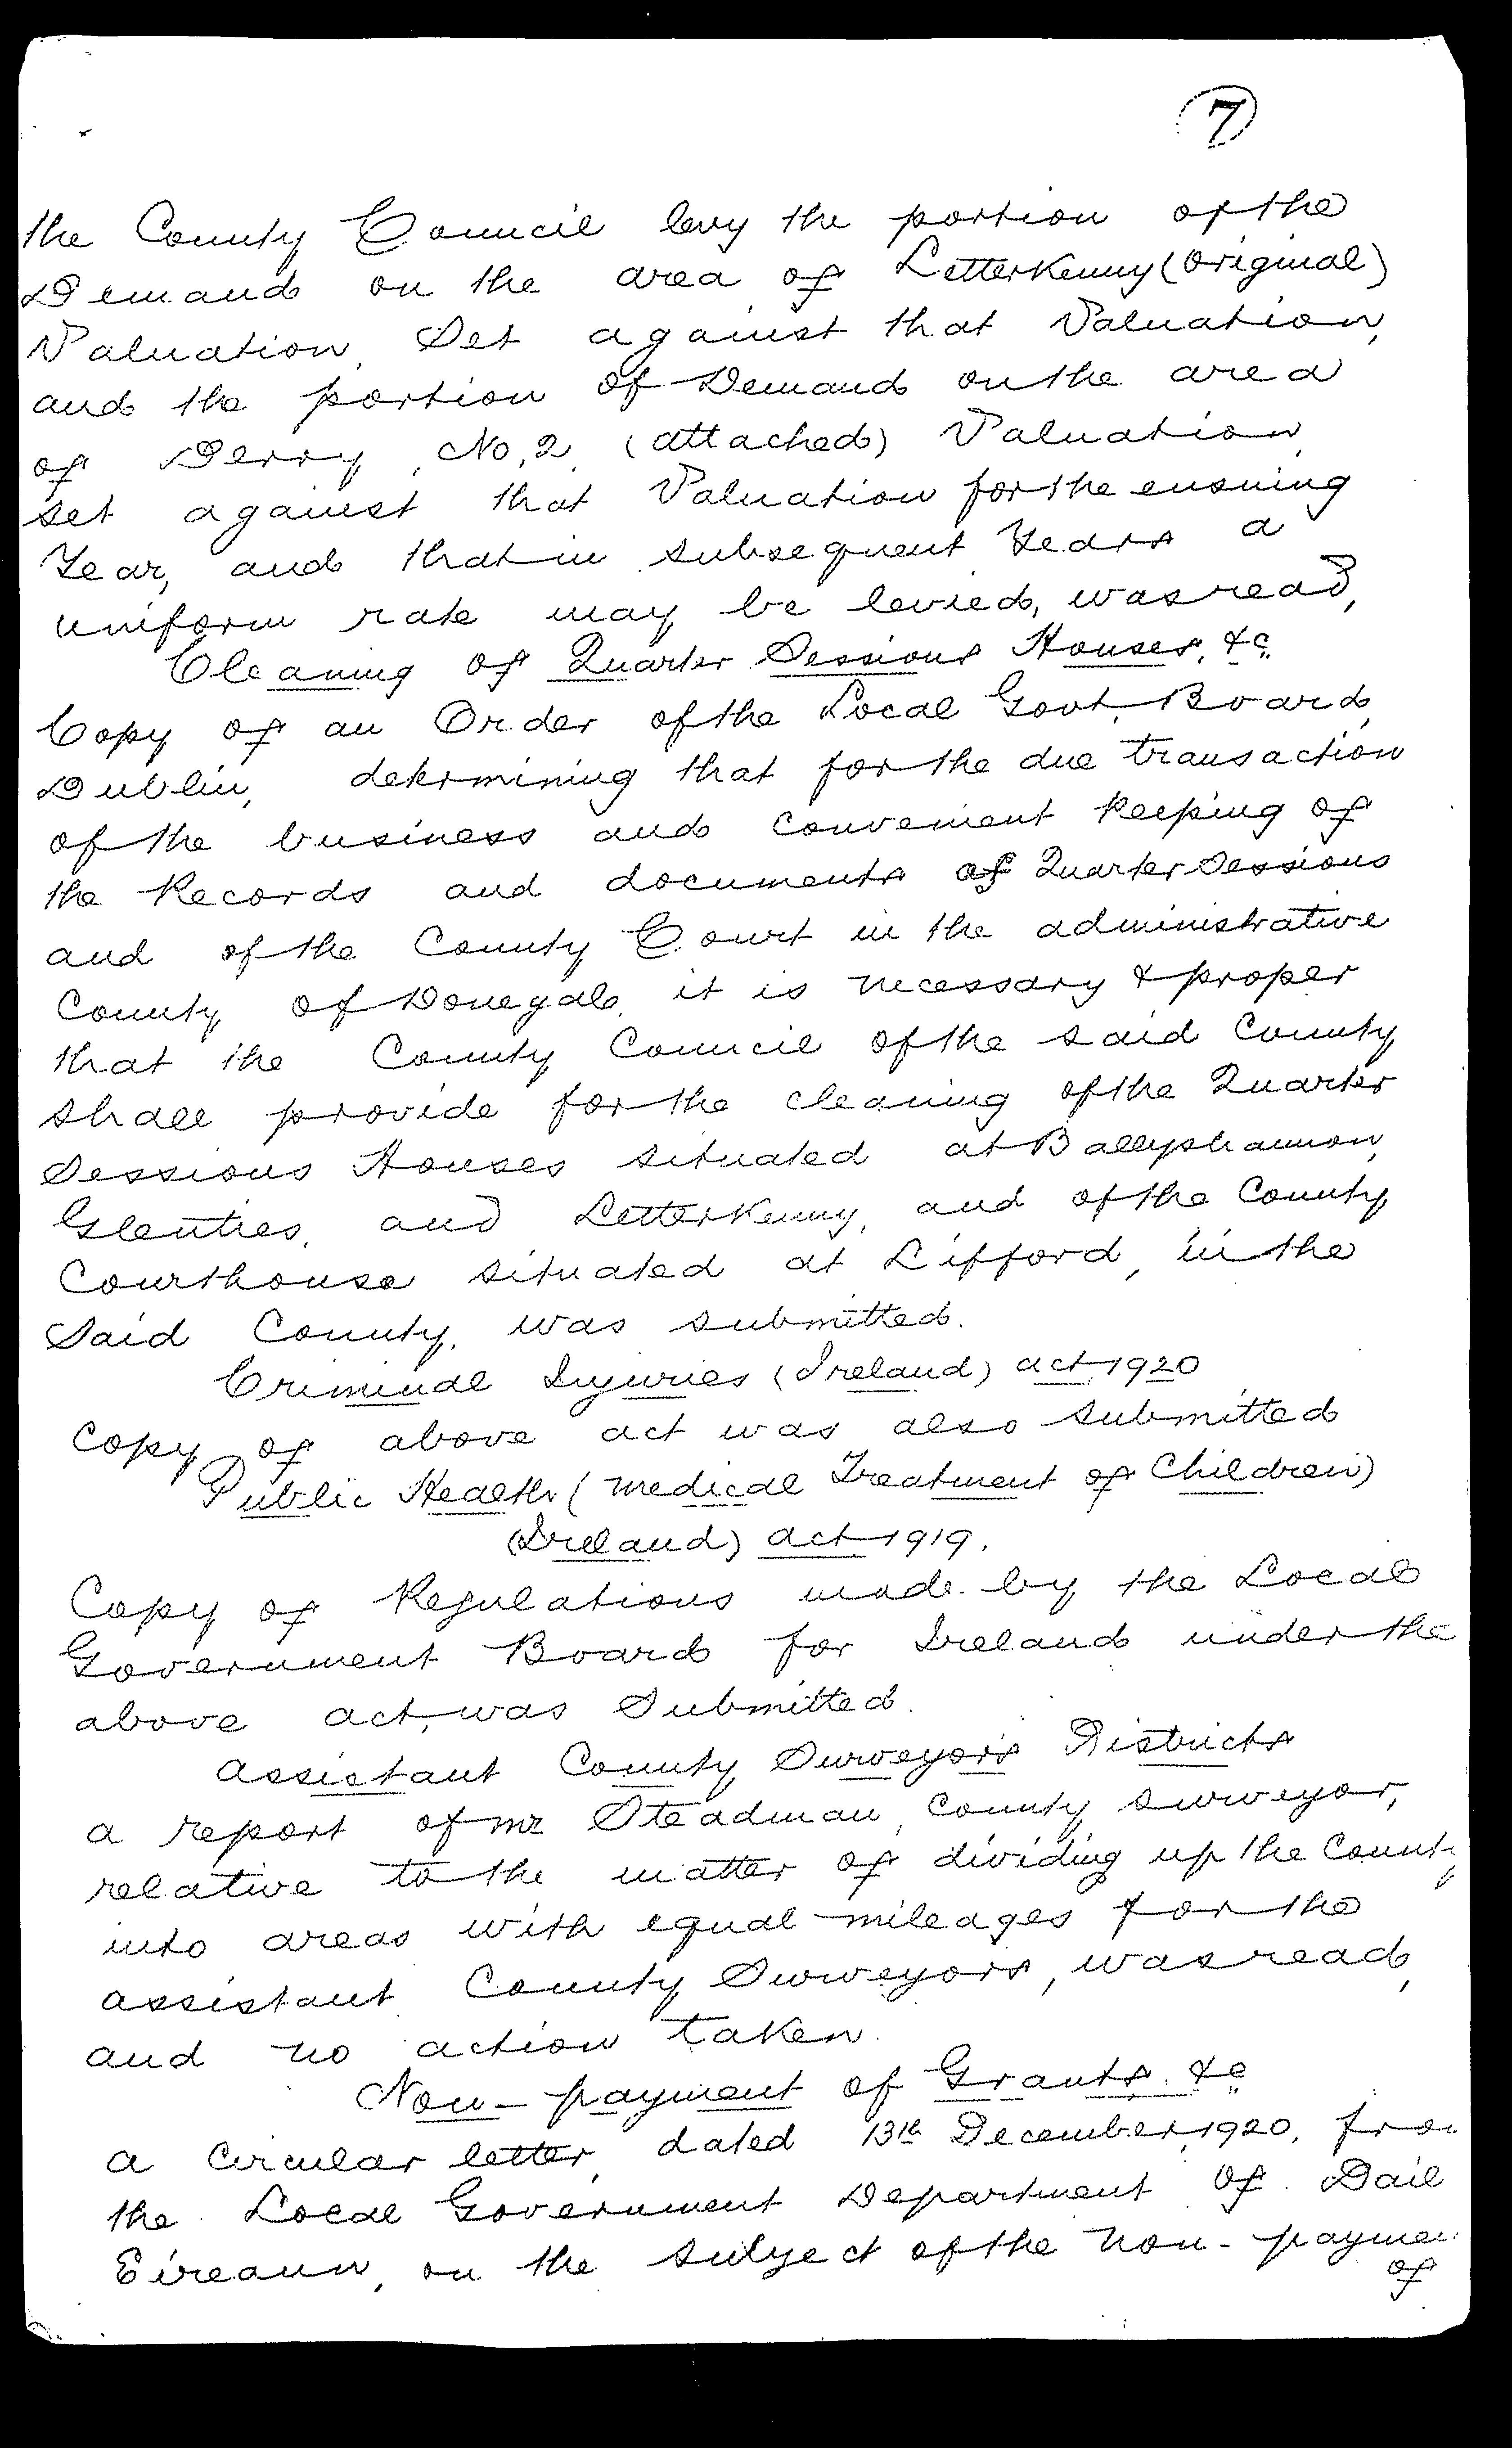 7
the County Council levy the portion of the
Demand on the area of Letterkenny (Original)
Valuation, Set against that Valuation,
and the portion of Demand on the area
of Derry, No. 2, (attached) Valuation,
set against that Valuation for the ensuing
Year, and that in subsequent Years a
uniform rate may be levied, was read,
Cleaning of Quarter Sessions Houses, &c.
Copy of an Order of the Local Govt. Board,
Dublin, determining that for the due transaction
of the business and convenient keeping of
the Records and documents of Quarter Sessions
and of the County Court in the administrative
County of Donegal, it is necessary & proper
that the County Council of the said County
shall provide for the cleaning of the Quarter
Sessions Houses situated at Ballyshannon,
Glenties, and Letterkenny, and of the County
Courthouse situated at Lifford, in the
Said County, was submitted.
Criminal Injuries (Ireland) act 1920
Copy of above act was also submitted
Public Health (medical Treatment of Children)
(Ireland) act 1919.
Copy of Regulations made by the Local
Government Board for Ireland under the
above act, was Submitted.
assistant County Surveyors Districts
a report of mr Steadman, County surveyor,
relative to the matter of dividing up the County
into areas with equal mileages for the
assistant County Surveyors, was read,
and no action taken.
Non-payment of Grants. &c
a Circular letter, dated 13th December, 1920, from
the Local Government Department of Dail
Eireann, on the subject of the non-paymen
of